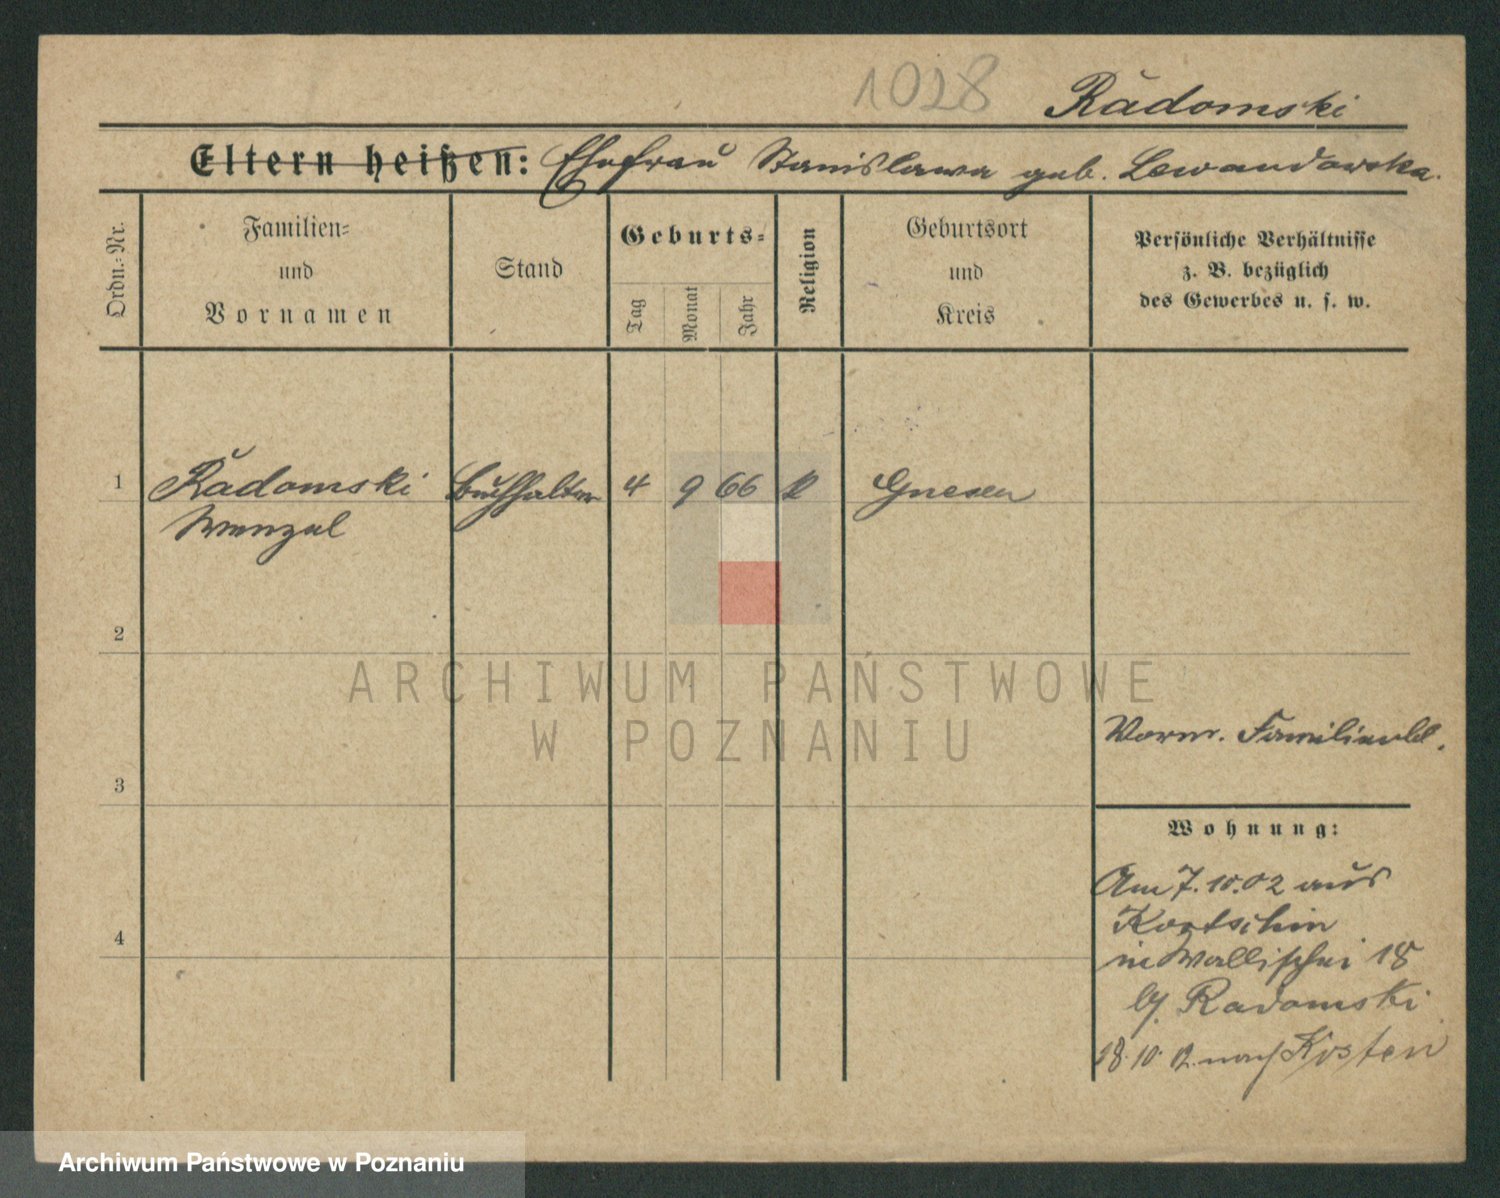 1028 Radomski
Eltern heißen: Ehefrau Stanislawa geb. Lewandowska.
Ordn.-Nr.
Familien-
und
Vornamen
Stand
Geburts-
Tag
Monat
Jahr
Religion
Geburtsort
und
Kreis
Persönliche Verhältnisse
z. B. bezüglich
des Gewerbes u. s. w.
1 Radomski Buchhalter 4 9 66 k Gnesen
Wenzel
2
ARCHIWUM PAŃSTWOWE
W POZNANIU
3
Wohnung:
Am 7.10.02 aus
4
in Wallischei 18
b/ Radomski
nach Kosten
Archiwum Państwowe w Poznaniu